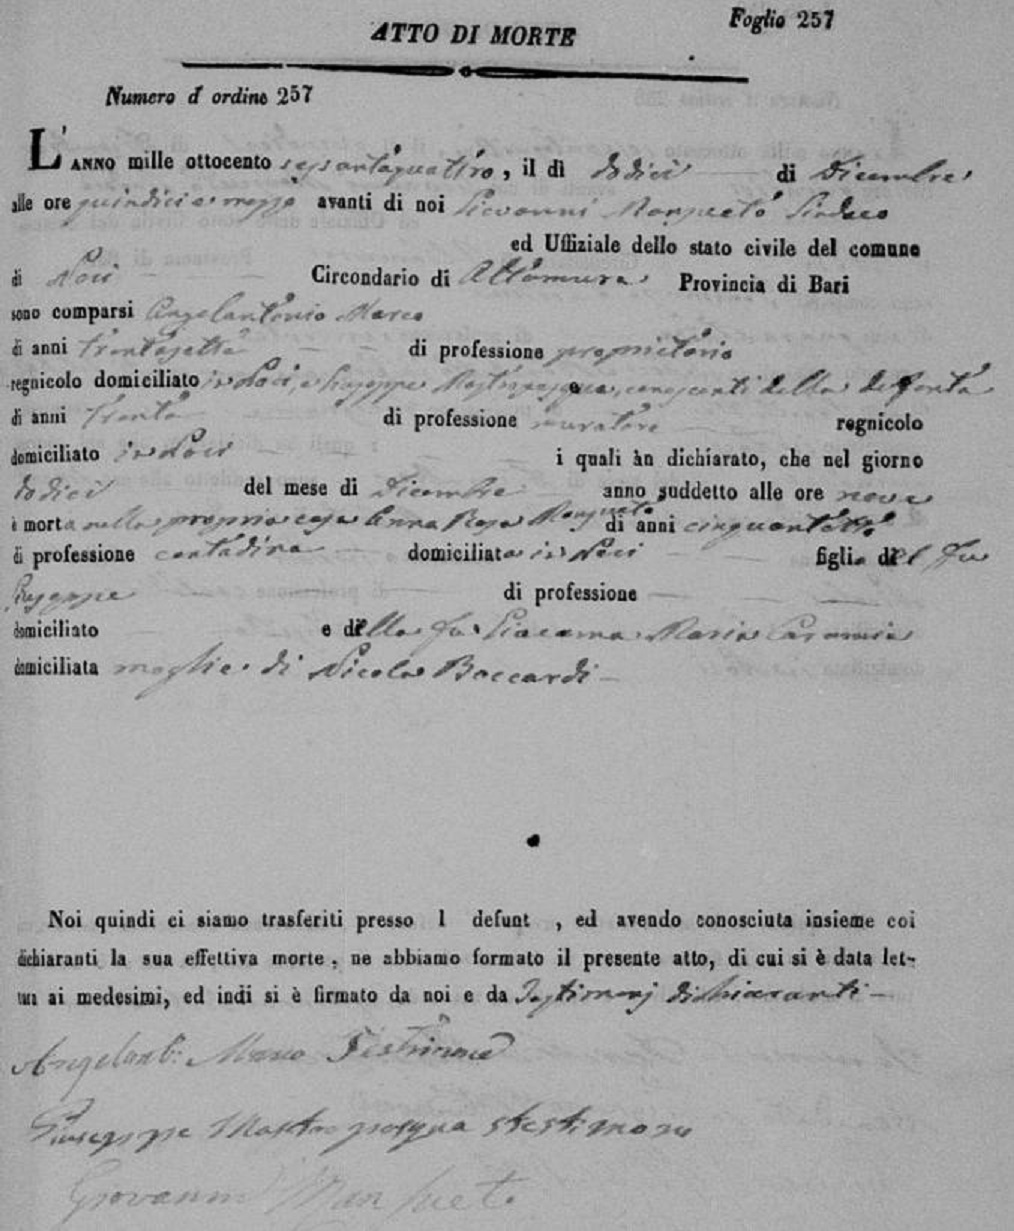 Foglio 257
ATTO DI MORTE
Numero d' ordine 257
L'ANNO mille ottocento sessantaquattro, il dì dodici di Dicembre
alle ore quindici e mezzo avanti di noi Giovanni Mansueto Sindaco
ed Uffiziale dello stato civile del comune
di Noci Circondario di Altamura Provincia di Bari
sono comparsi Angelantonio Marco
di anni trentasette di professione proprietario
regnicolo domiciliato in Noci, e Giuseppe Mastropasqua, conoscenti della defonta
di anni trenta di professione muratore regnicolo
domiciliato in Noci i quali àn dichiarato, che nel giorno
dodici del mese di Dicembre anno suddetto alle ore nove
è morta nella propria casa Anna Rosa Mansueto di anni cinquantotto
di professione contadina domiciliata in Noci figlia del fu
Giuseppe di professione
domiciliato e della fu Giacoma Maria
domiciliata moglie di Nicola Boccardi
Noi quindi ci siamo trasferiti presso l defunt , ed avendo conosciuta insieme coi
dichiaranti la sua effettiva morte, ne abbiamo formato il presente atto, di cui si è data let-
tura ai medesimi, ed indi si è firmato da noi e da Testimonj dichiaranti
Angelant: Marco Testimone
Giuseppe Mastropasqua testimone
Giovanni Mansueto